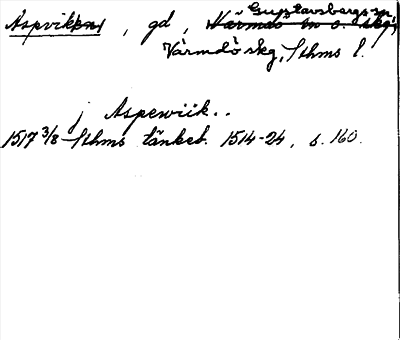 Aspvik, gd, Gustavsbergs sn,
Värmdö skg, Sthms l.
j Aspewiik..
1517 3/8 Sthms tänkeb. 1514-24, s. 160.